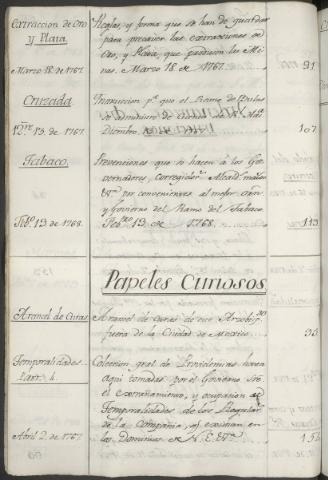 Extraccion de Oro y Plata.
Reglas, y forma que se han de guardar
para precaver las extracciones de
Oro, y Plata, que padecen las Mi-
nas. Marzo 18. de 1767.
Marzo 18. de 1767.
91
Cruzada
Instruccion pª. que el Ramo de Bulas
Diciembre
12.re 13. de 1767.
107
Tabaco.
Prevenciones que se hacen á los Go-
vernadores, Corregidor.s Alcald.s maior.s
Ettª. por convenientes al mejor orn.
y Govierno del Ramo del Tabaco.
Feb.ro 13 de 1768.
Feb.o 13 de 1768.
113
Papeles Curiosos
Aranzel de Curas.
Aranzel de Curas de este Arzobisp.do
fuera de la Ciudad de Mexico
93
Temporalidades
Part. 1.
Coleccion gral. de Providencias hasta
aqui tomadas por el Govierno Sre.
el estrañamiento, y ocupacion de
Temporalidades de los Regular.s
de la Compañia, q.e existian en
los Dominios de N. E. Ettª.
Abril 2. de 1767.